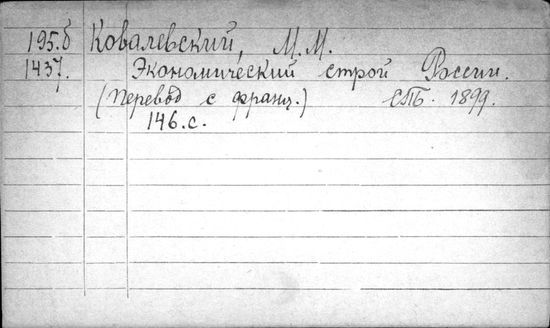 195.б Ковалевский, М.М.
1437. Экономический строй России.
(Перевод с франц.) СПБ. 1899.
146.с.